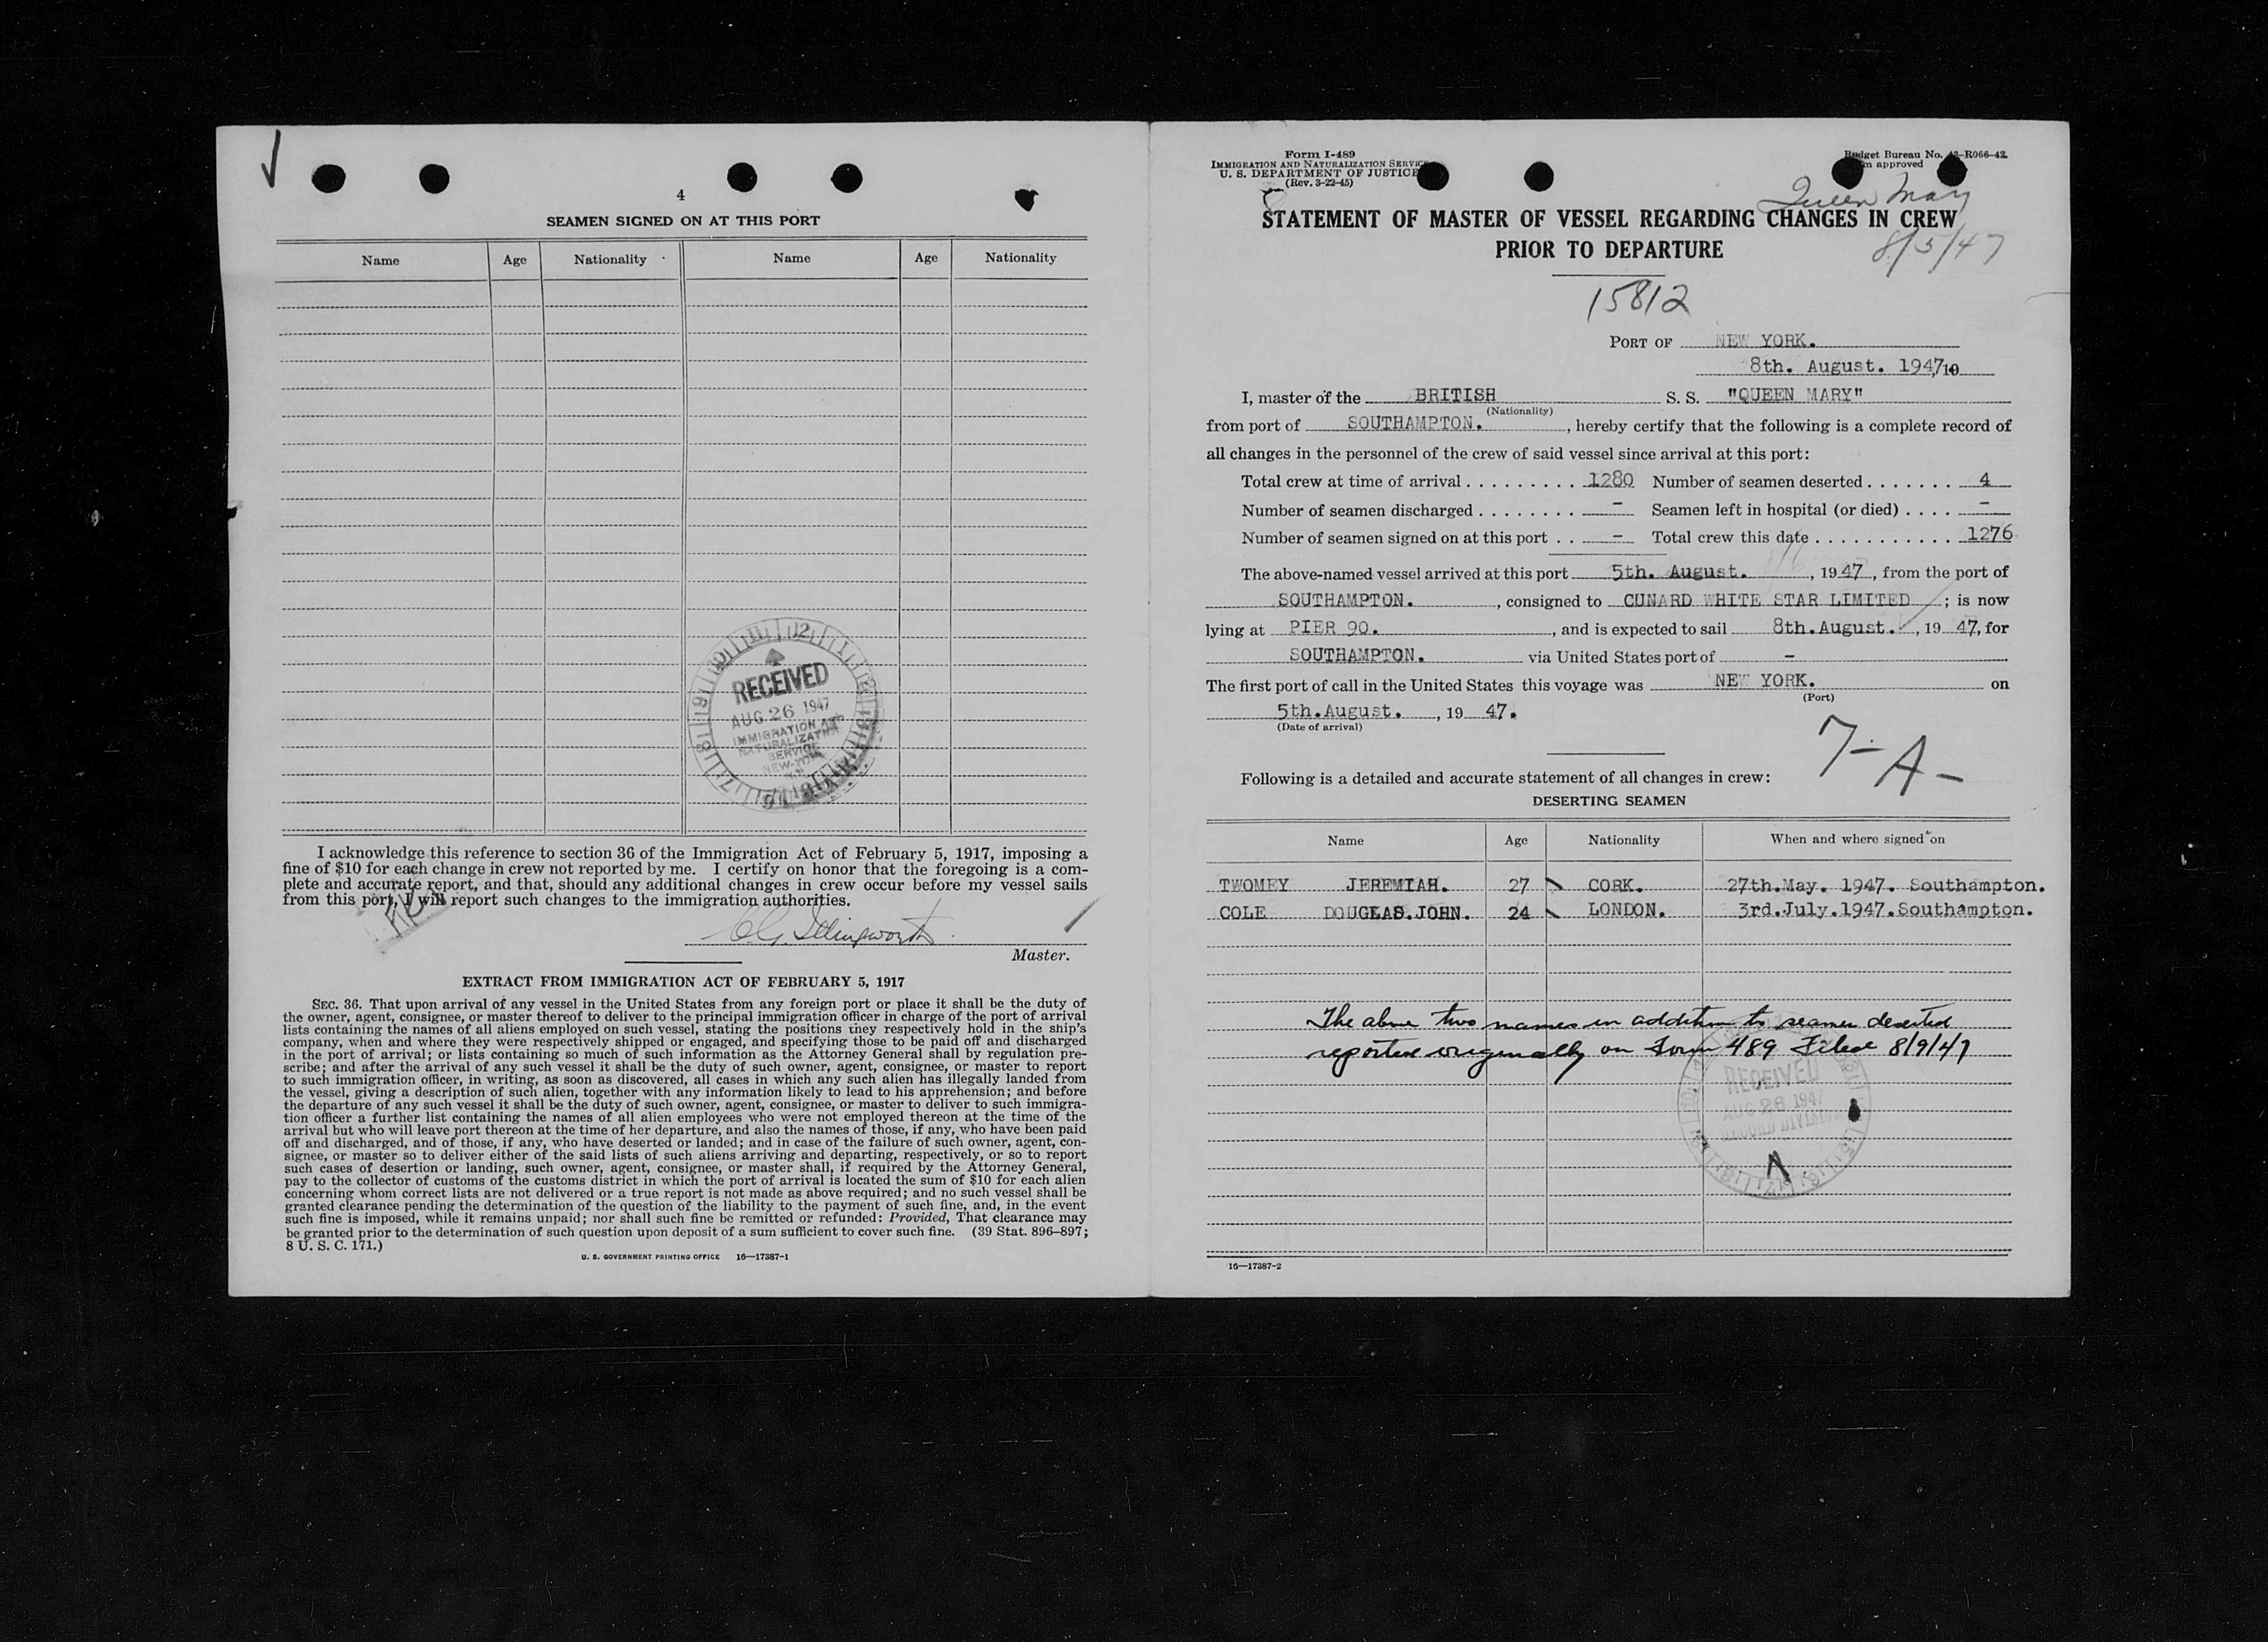 4
SEAMEN SIGNED ON AT THIS PORT
Name Age Nationality Name Age Nationality
RECEIVED
AUG 26 1947
IMMIGRATION AND
NATURALIZATION
SERVICE
NEW-YORK
I acknowledge this reference to section 36 of the Immigration Act of February 5, 1917, imposing a
fine of $10 for each change in crew not reported by me. I certify on honor that the foregoing is a com-
plete and accurate report, and that, should any additional changes in crew occur before my vessel sails
from this port, I will report such changes to the immigration authorities.
C. G. Illingworth.
Master.
EXTRACT FROM IMMIGRATION ACT OF FEBRUARY 5, 1917
SEC. 36. That upon arrival of any vessel in the United States from any foreign port or place it shall be the duty of
the owner, agent, consignee, or master thereof to deliver to the principal immigration officer in charge of the port of arrival
lists containing the names of all aliens employed on such vessel, stating the positions they respectively hold in the ship's
company, when and where they were respectively shipped or engaged, and specifying those to be paid off and discharged
in the port of arrival; or lists containing so much of such information as the Attorney General shall by regulation pre-
scribe; and after the arrival of any such vessel it shall be the duty of such owner, agent, consignee, or master to report
to such immigration officer, in writing, as soon as discovered, all cases in which any such alien has illegally landed from
the vessel, giving a description of such alien, together with any information likely to lead to his apprehension; and before
the departure of any such vessel it shall be the duty of such owner, agent, consignee, or master to deliver to such immigra-
tion officer a further list containing the names of all alien employees who were not employed thereon at the time of the
arrival but who will leave port thereon at the time of her departure, and also the names of those, if any, who have been paid
off and discharged, and of those, if any, who have deserted or landed; and in case of the failure of such owner, agent, con-
signee, or master so to deliver either of the said lists of such aliens arriving and departing, respectively, or so to report
such cases of desertion or landing, such owner, agent, consignee, or master shall, if required by the Attorney General,
pay to the collector of customs of the customs district in which the port of arrival is located the sum of $10 for each alien
concerning whom correct lists are not delivered or a true report is not made as above required; and no such vessel shall be
granted clearance pending the determination of the question of the liability to the payment of such fine, and, in the event
such fine is imposed, while it remains unpaid; nor shall such fine be remitted or refunded: Provided, That clearance may
be granted prior to the determination of such question upon deposit of a sum sufficient to cover such fine. (39 Stat. 896–897;
8 U. S. C. 171.)
U. S. GOVERNMENT PRINTING OFFICE 16—17387-1
Form I-489
IMMIGRATION AND NATURALIZATION SERVICE
U. S. DEPARTMENT OF JUSTICE
(Rev. 3-22-45)
Budget Bureau No. 43-R066-42
approved
Queen Mary
STATEMENT OF MASTER OF VESSEL REGARDING CHANGES IN CREW
PRIOR TO DEPARTURE
8/5/47
15812
PORT OF NEW YORK.
8th. August. 1947, 19
I, master of the BRITISH S. S. "QUEEN MARY"
(Nationality)
from port of SOUTHAMPTON. , hereby certify that the following is a complete record of
all changes in the personnel of the crew of said vessel since arrival at this port:
Total crew at time of arrival . . . . . . . . . 1280 Number of seamen deserted . . . . . . . 4
Number of seamen discharged . . . . . . . . - Seamen left in hospital (or died) . . . . -
Number of seamen signed on at this port . . - Total crew this date . . . . . . . . . . . 1276
The above-named vessel arrived at this port 5th. August. , 19 47 , from the port of
SOUTHAMPTON. , consigned to CUNARD WHITE STAR LIMITED ; is now
lying at PIER 90. , and is expected to sail 8th.August. , 19 47, for
SOUTHAMPTON. via United States port of -
The first port of call in the United States this voyage was NEW YORK. on
(Port)
5th.August. , 19 47.
(Date of arrival)
7-A-
Following is a detailed and accurate statement of all changes in crew:
DESERTING SEAMEN
Name Age Nationality When and where signed on
TWOMEY JEREMIAH. 27 CORK. 27th.May. 1947. Southampton.
COLE DOUGLAS.JOHN. 24 LONDON. 3rd.July.1947.Southampton.
The above two names in addition to seamen deserted
reported originally on Form 489 Filed 8/9/47
RECEIVED
AUG 26 1947
RECORD DIVISION
16—17387-2